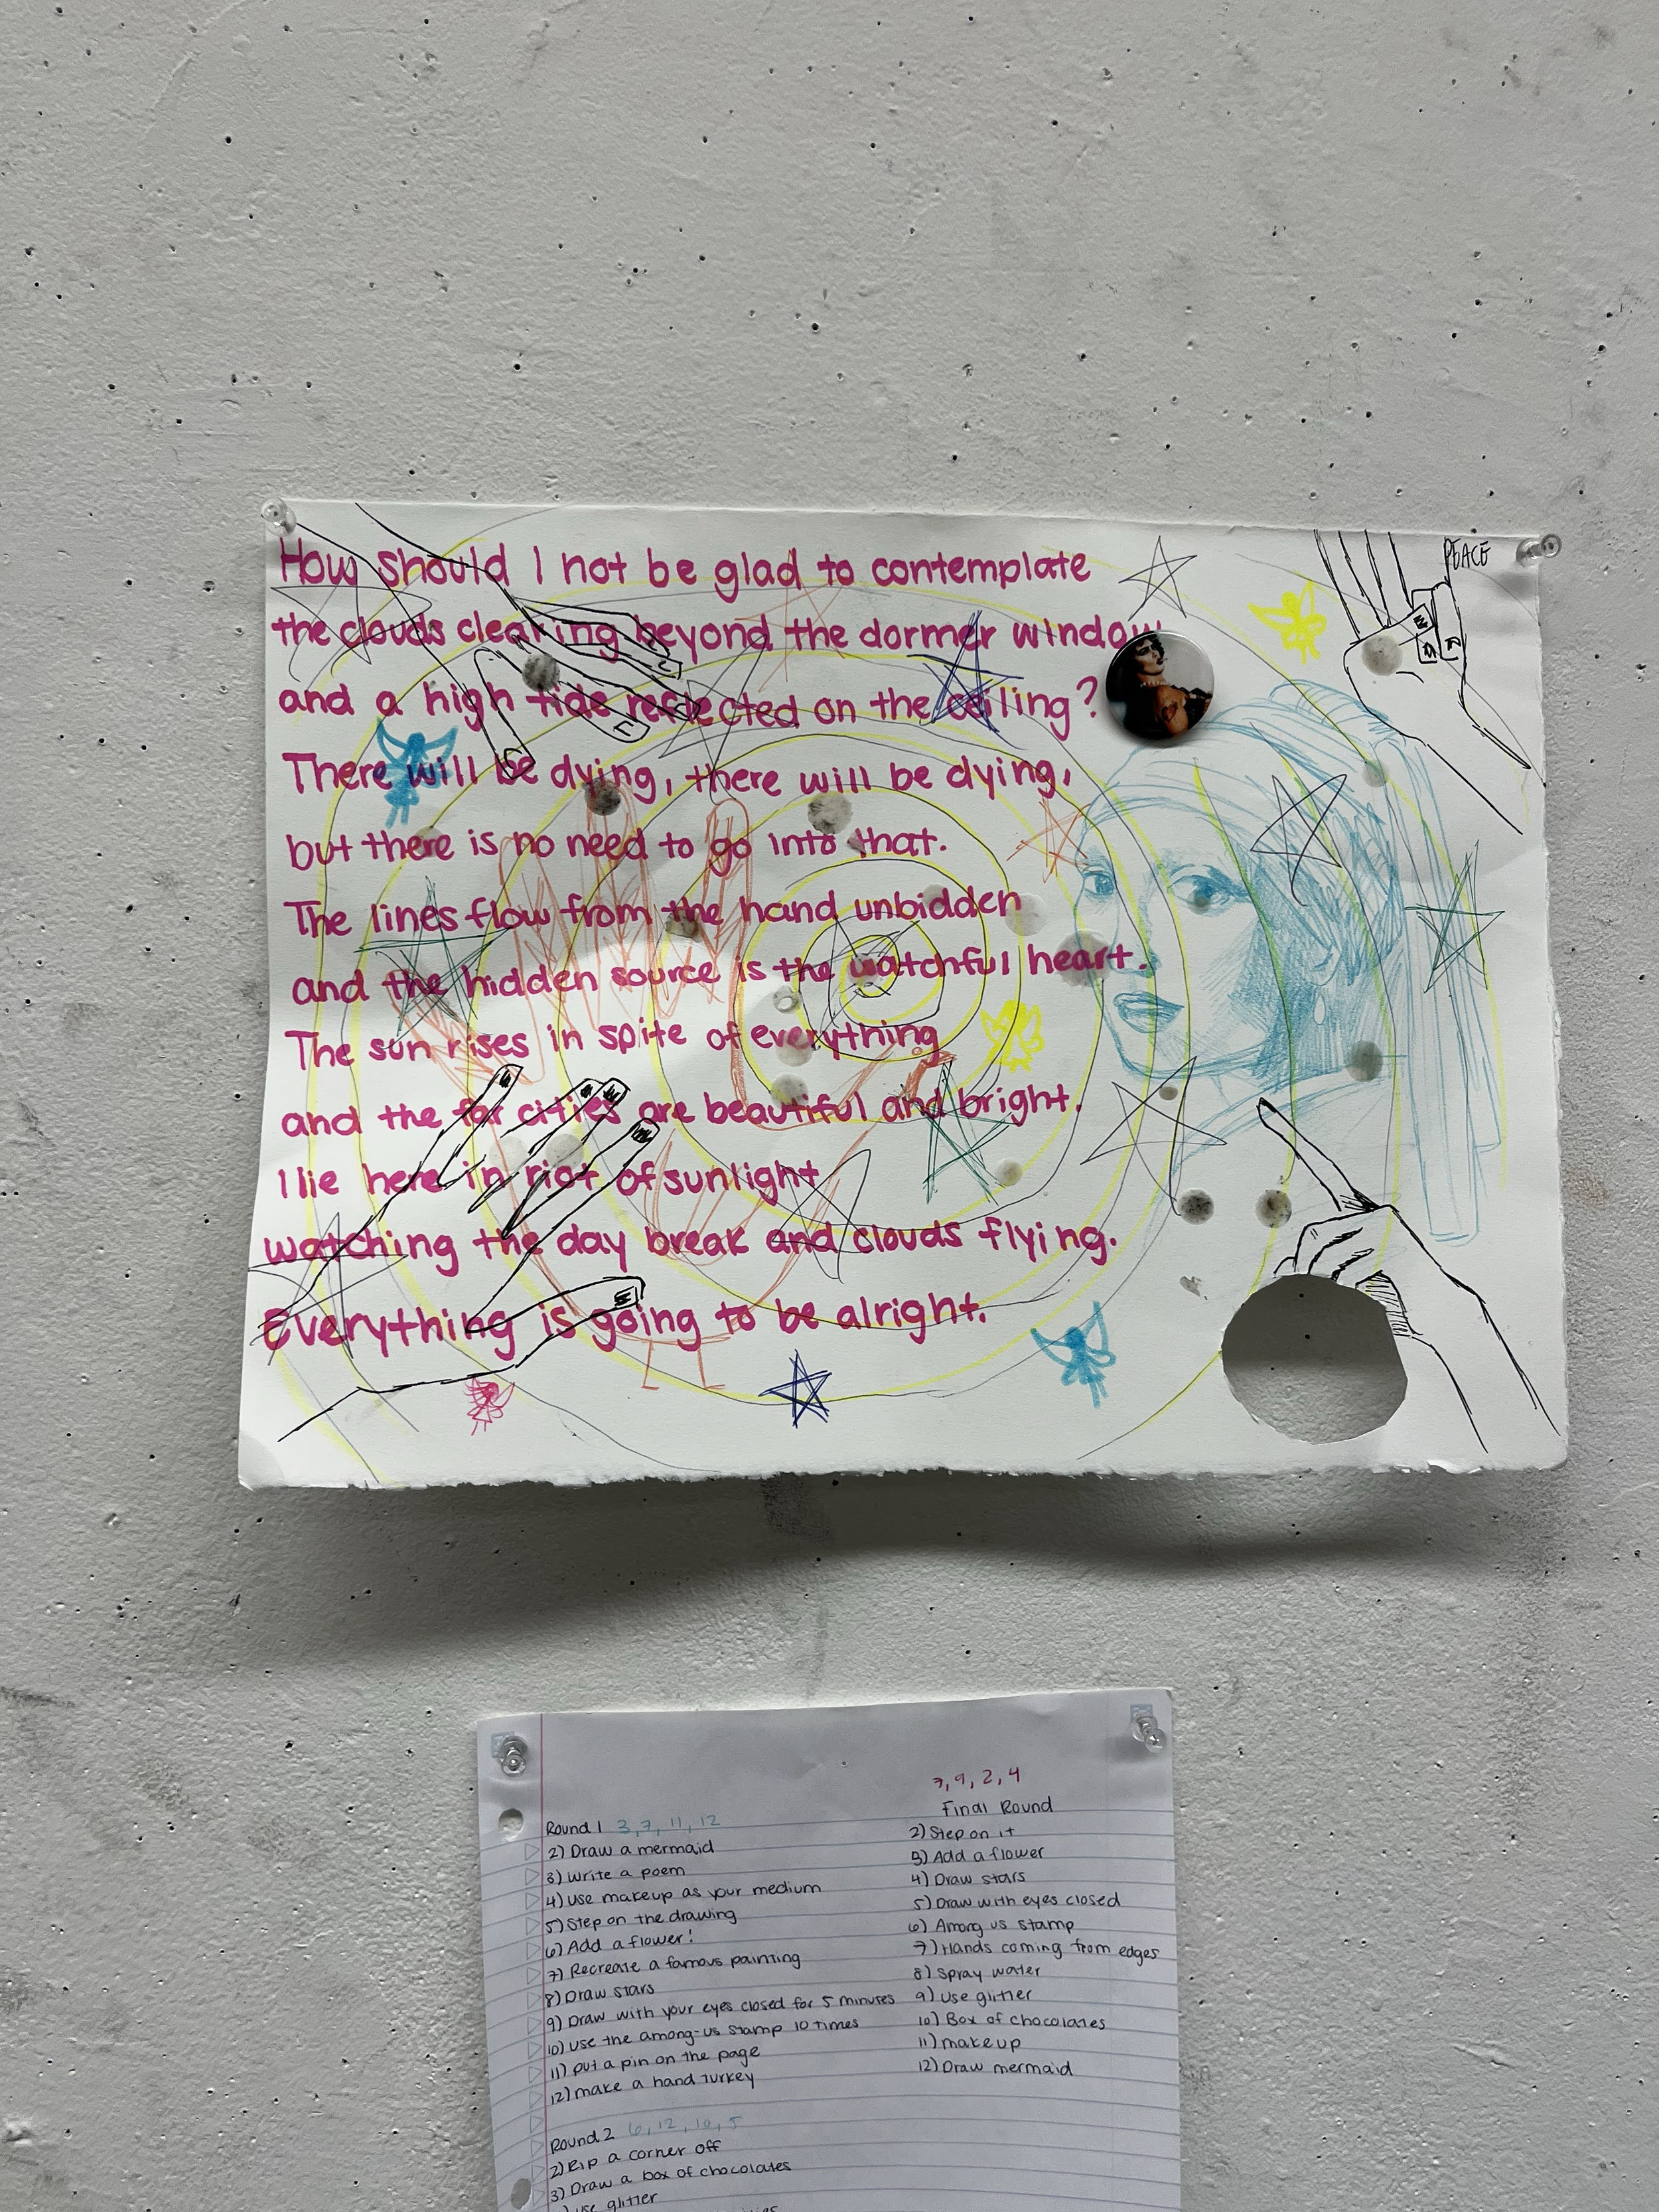 How should I not be glad to contemplate
the clouds clearing beyond the dormer window
and a high tide reflected on the ceiling?
There will be dying, there will be dying,
but there is no need to go into that.
The lines flow from the hand unbidden
and the hidden source is the watchful heart.
The sun rises in spite of everything
and the far cities are beautiful and bright.
I lie here in riot of sunlight
watching the day break and clouds flying.
Everything is going to be alright.
PEACE
Round 1 3, 7, 11, 12
2) Draw a mermaid
3) Write a poem
4) Use makeup as your medium
5) Step on the drawing
6) Add a flower!
7) Recreate a famous painting
8) Draw stars
9) Draw with your eyes closed for 5 minutes
10) Use the among-us stamp 10 times
11) put a pin on the page
12) make a hand turkey
Round 2 6, 12, 10, 5
2) Rip a corner off
3) Draw a box of chocolates
use glitter
7, 9, 2, 4
Final Round
2) Step on it
3) Add a flower
4) Draw stars
5) Draw with eyes closed
6) Among us stamp
7) Hands coming from edges
8) Spray water
9) Use glitter
10) Box of chocolates
11) makeup
12) Draw mermaid